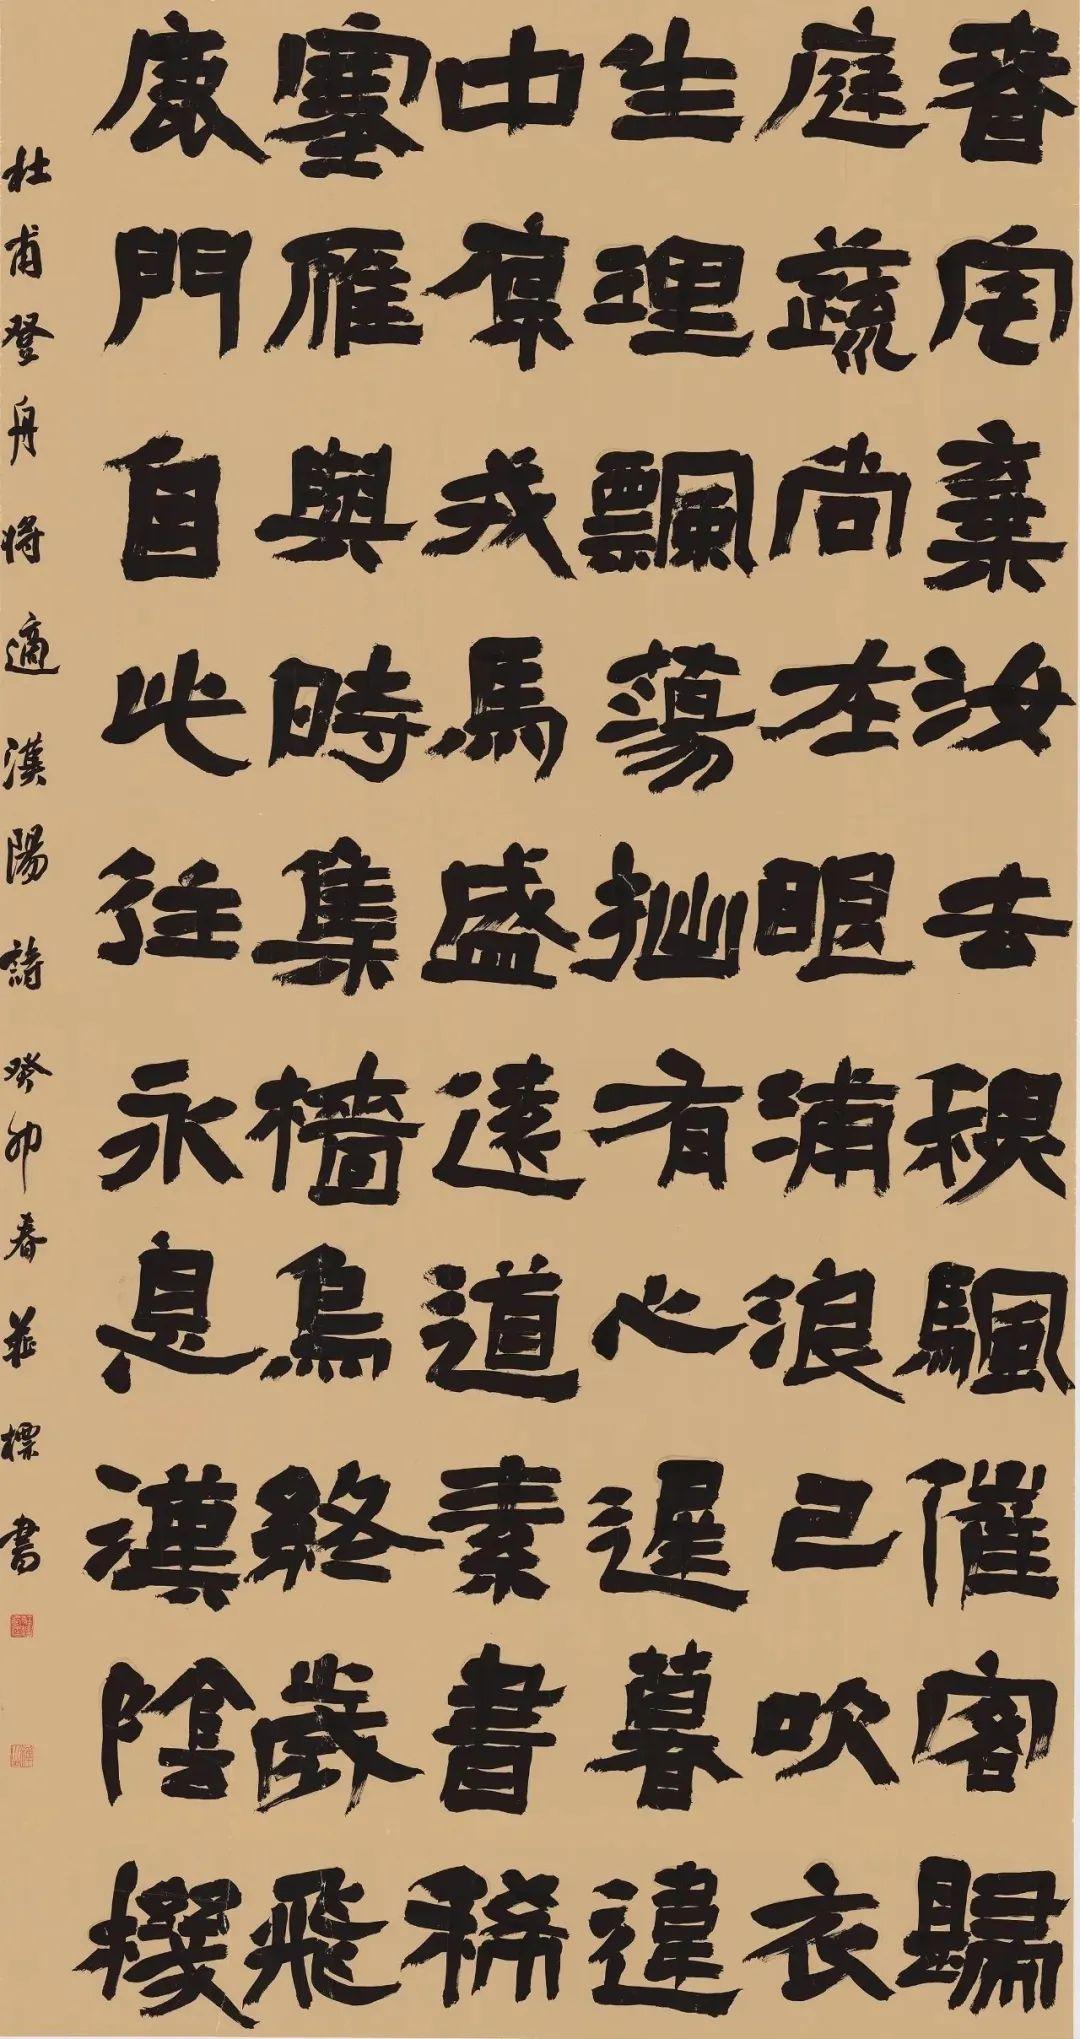 春宅棄汝去秋颿催客歸
庭蔬尚在眼浦浪已吹衣
生理飄蕩拙有心遲暮違
中原戎馬盛遠道素書稀
塞雁與時集檣烏終歲飛
鹿門自此往永息漢陰機
杜甫登舟將適漢陽詩癸卯春莊標書